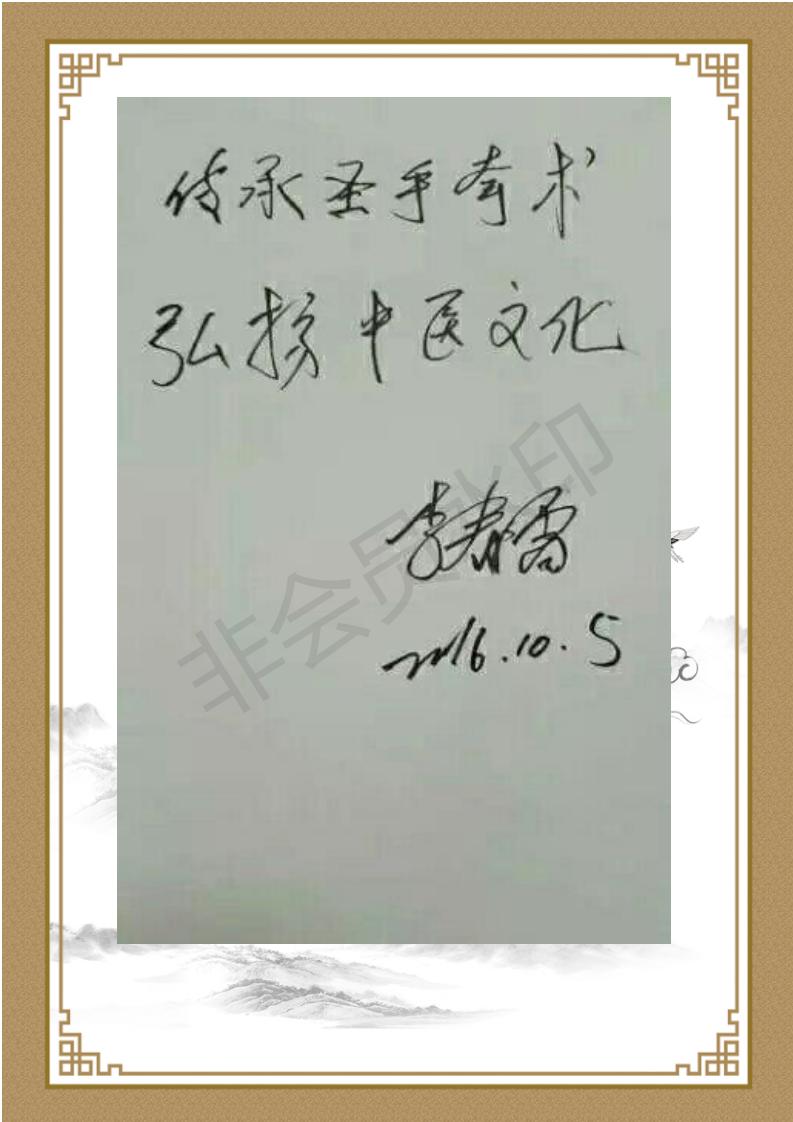 传承圣手奇术
弘扬中医文化
李春雷
2016.10.5
非会员水印